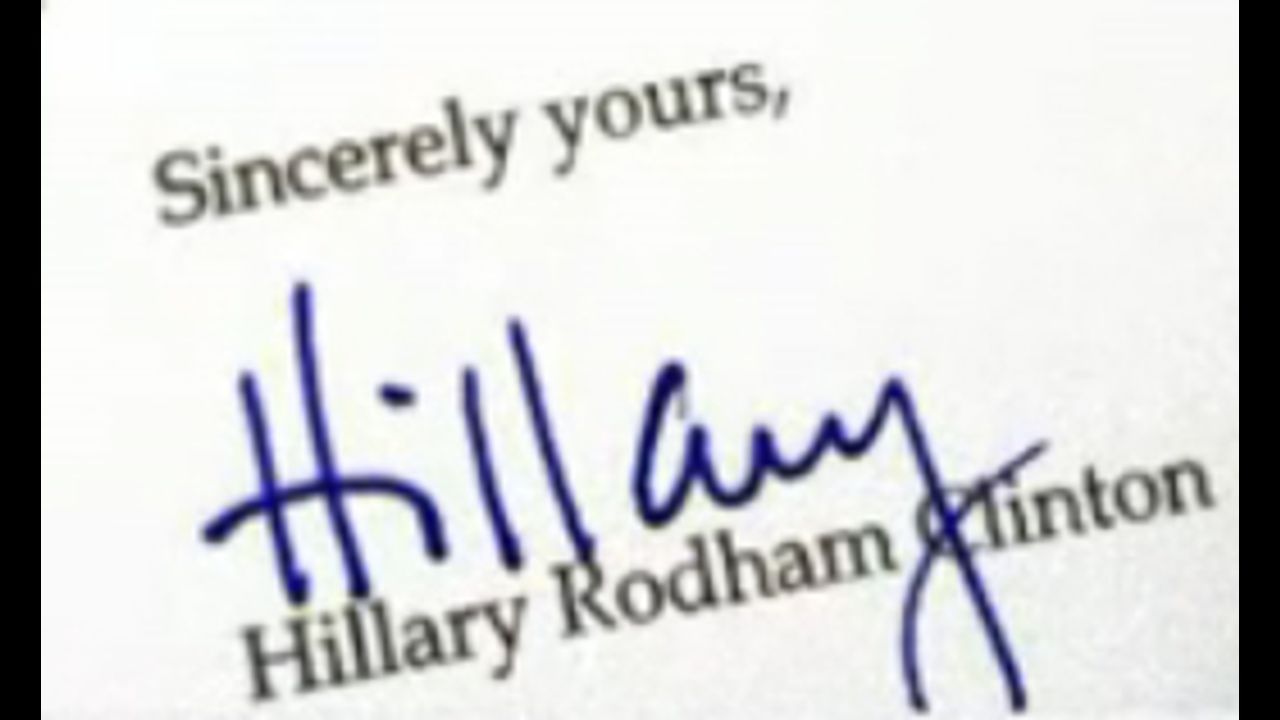 Sincerely yours,
Hillary
Hillary Rodham Clinton